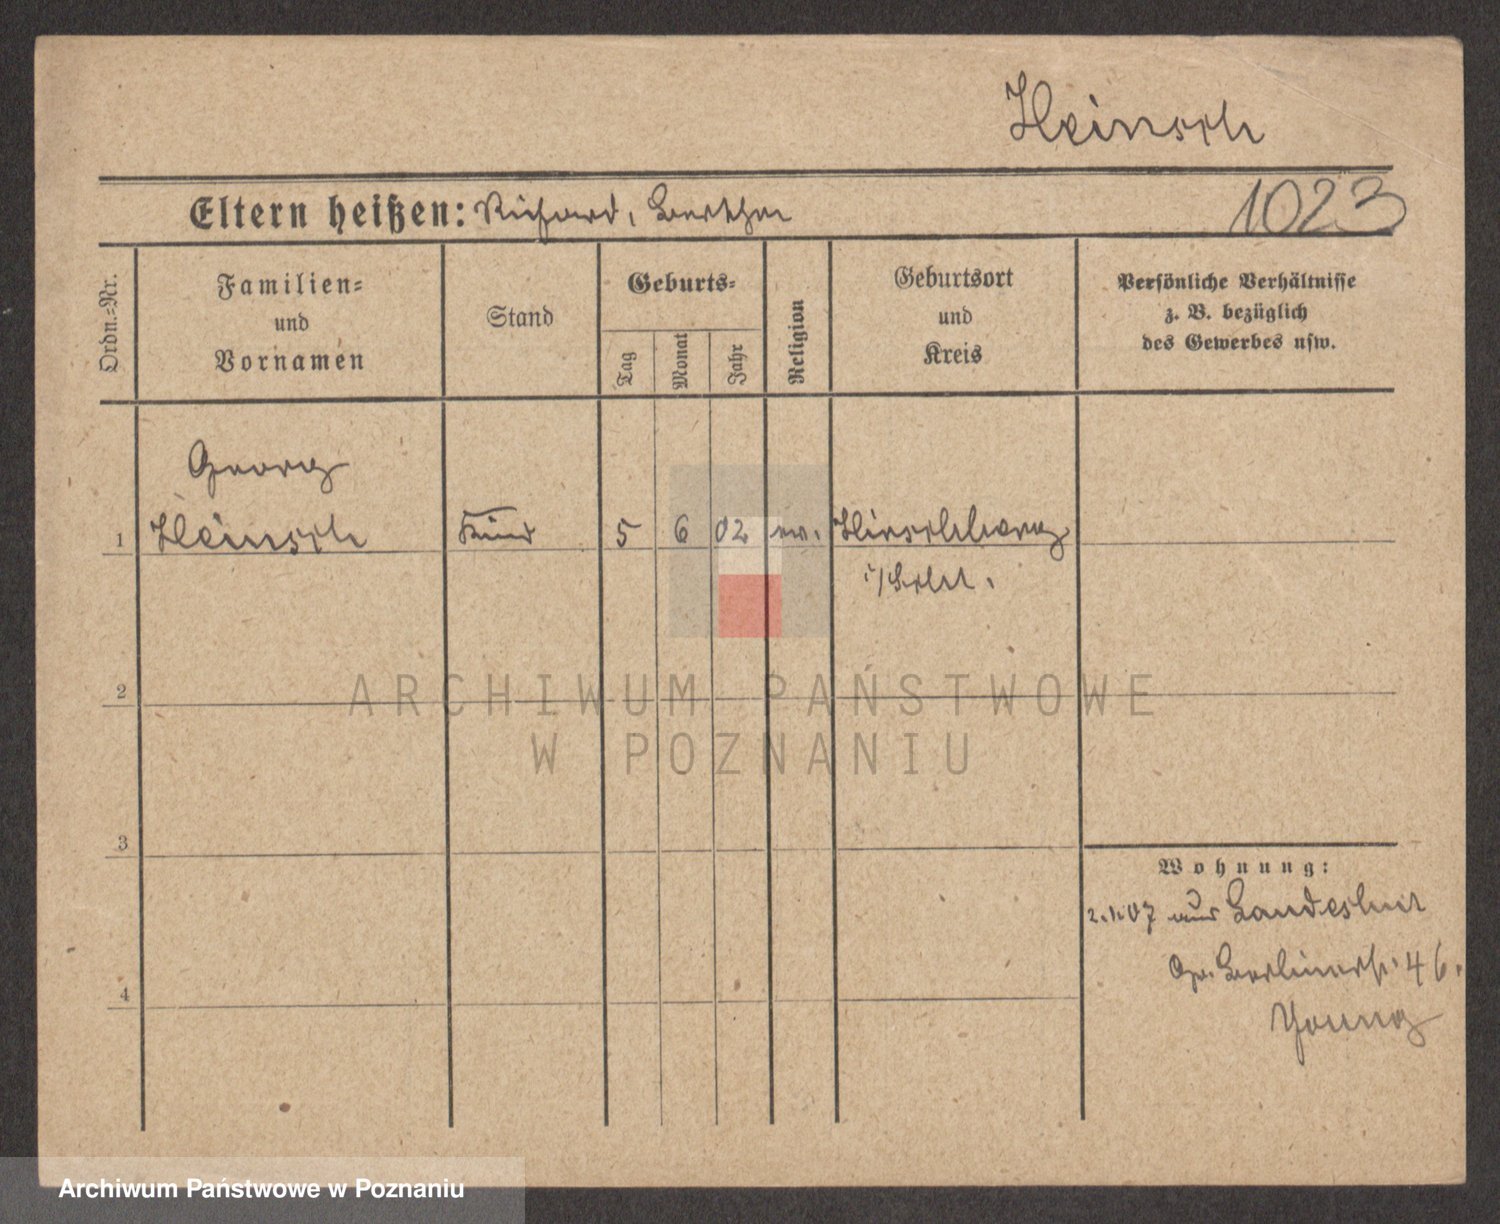 Heinsch
Eltern heißen: Richard, Bertha
1023
Ordn.-Nr.
Familien-
und
Vornamen
Stand
Geburts-
Tag
Monat
Jahr
Religion
Geburtsort
und
Kreis
Persönliche Verhältnisse
z. B. bezüglich
des Gewerbes usw.
Georg
1 Heinsch Kind 5 6 02 ev. Hirschberg
i/Schl.
2
3
4
Wohnung:
2.1.07 aus Landeshut
Gr. Berlinerstr. 46.
Young
ARCHIWUM PAŃSTWOWE
W POZNANIU
Archiwum Państwowe w Poznaniu